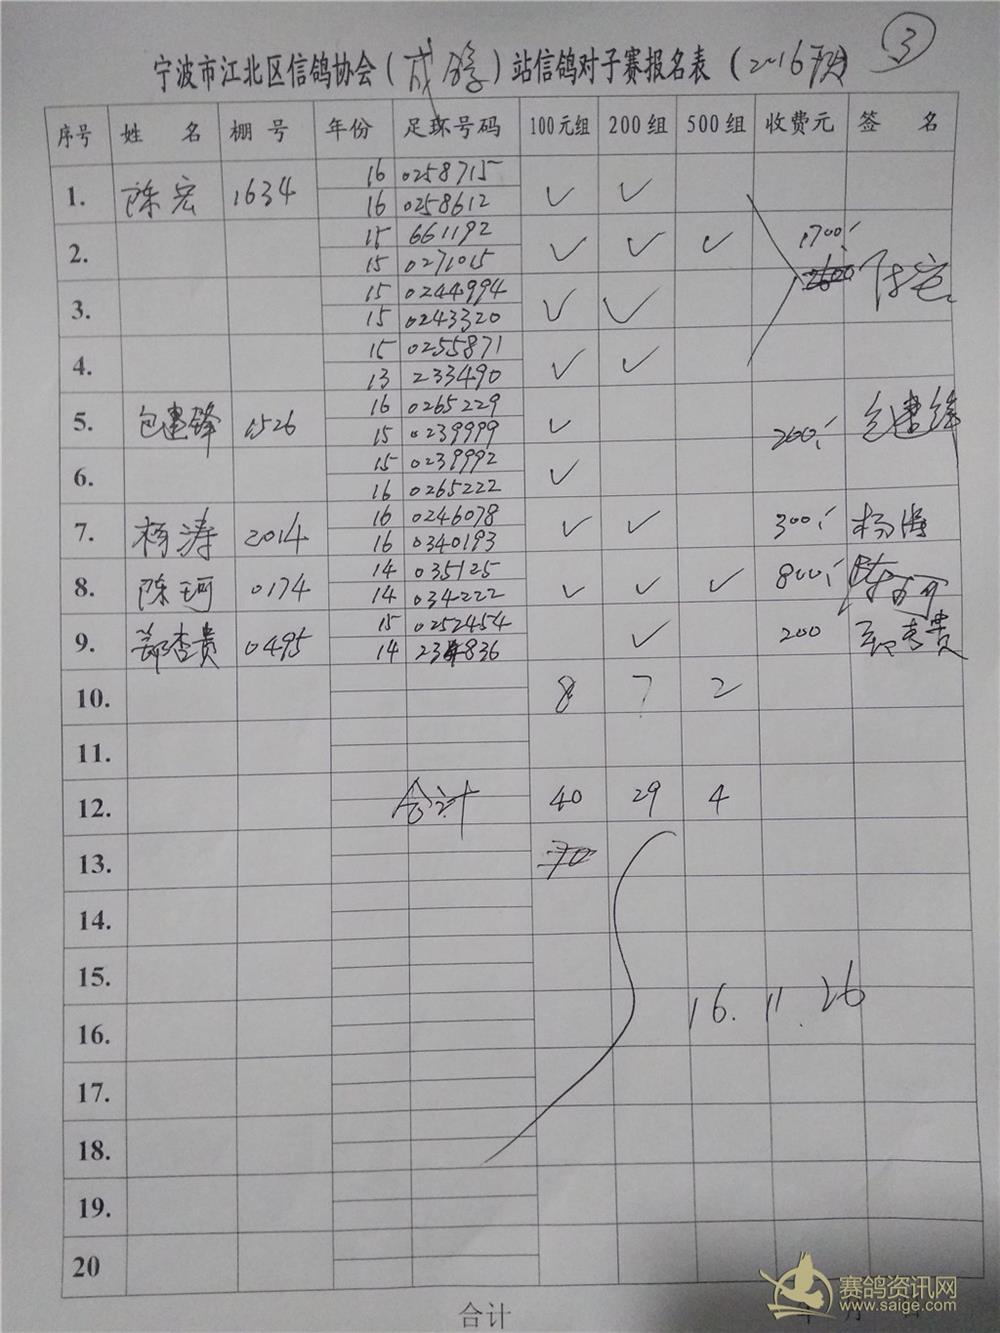 宁波市江北区信鸽协会（ ）站信鸽对子赛报名表（2016 ） ③
序号 姓 名 棚 号 年份 足环号码 100元组 200组 500组 收费元 签 名
1. 陈宏 1634 16 0258715 ✓ ✓
16 0258612
2. 15 661192 ✓ ✓ ✓ 1700,-
15 0271015
3. 15 0244994 ✓ ✓
15 0243320
4. 15 0255871 ✓ ✓
13 233490
5. 包建锋 1526 16 0265229 ✓ 200,- 包建锋
15 0239999
6. 15 0239992 ✓
16 0265222
7. 杨涛 2014 16 0246078 ✓ ✓ 300,- 杨涛
16 0340193
8. 陈珂 0174 14 035125 ✓ ✓ ✓ 800,- 陈珂
14 034222
9. 郑杏贵 0495 15 0252454 ✓ 200 郑杏贵
14 234836
10. 8 7 2
11.
12. 合计 40 29 4
13. 70
14.
15.
16. 16.11.26
17.
18.
19.
20
合计
赛鸽资讯网
www.saige.com